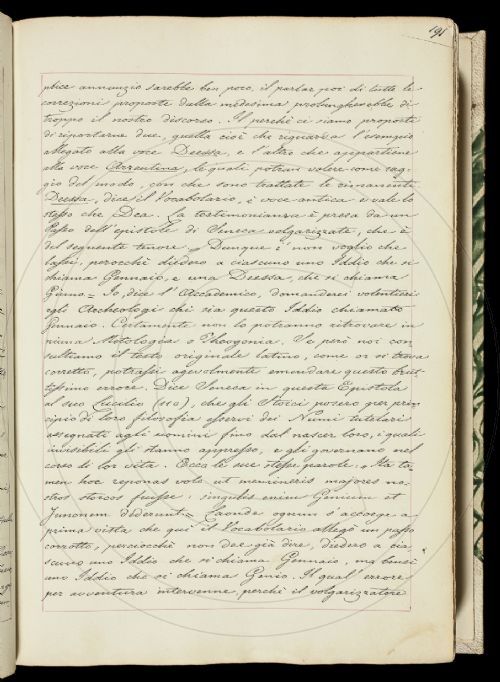 191
plice annunzio sarebbe ben poco, il parlar poi di tutte le
correzioni proposte dalla medesima prolungherebbe di
troppo il nostro discorso. Il perchè ci siamo proposti
di riportarne due, quella cioè che riguarda l'esempio
allegato alla voce Deessa, e l'altro che appartiene
alla voce Arrentina, le quali potran valere come sag-
gio del modo, con che sono trattate le rimanenti
Deessa, dice il Vocabolario, è voce antica e vale lo
stesso che Dea. La testimonianza è presa da un
Passo dell'epistole di Seneca volgarizzate, che è
del seguente tenore = Dunque i' non voglio che
lassi, perocchè diedero a ciascuno uno Iddio che si
chiama Gennaio, e una Deessa, che si chiama
= Io, dice l'Accademico, domanderei volentieri
egli Archeologi chi sia questo Iddio chiamato
Gennaio. Certamente non lo potranno ritrovare in
niuna Mitologia o Theogonia. Se però noi con-
sultiamo il testo originale latino, come or si trova
corretto, potrassi agevolmente emendare questo brut-
tissimo errore. Dice Seneca in questa Epistola
al suo Lucilio (110), che gli Stoici posero per prin-
cipio di loro filosofia esservi dei Numi tutelari
assegnati agli uomini fino dal nascer loro, i quali
invisibili gli stanno appresso, e gli governano nel
corso di lor vita. Ecco le sue stesse parole = Ita ta-
men hoc reponas volo ut memineris majores no-
stros stoicos fuisse: singulis enim Genium et
Junonem dederunt = Laonde ognun s'accorge a
prima vista che qui il Vocabolario allegò un passo
corrotto, perciocchè non dee già dire, diedero a cia-
scuno uno Iddio che si chiama Gennaio, ma bensì
uno Iddio che si chiama Genio. Il qual'errore
per avventura intervenne, perchè il volgarizzatore